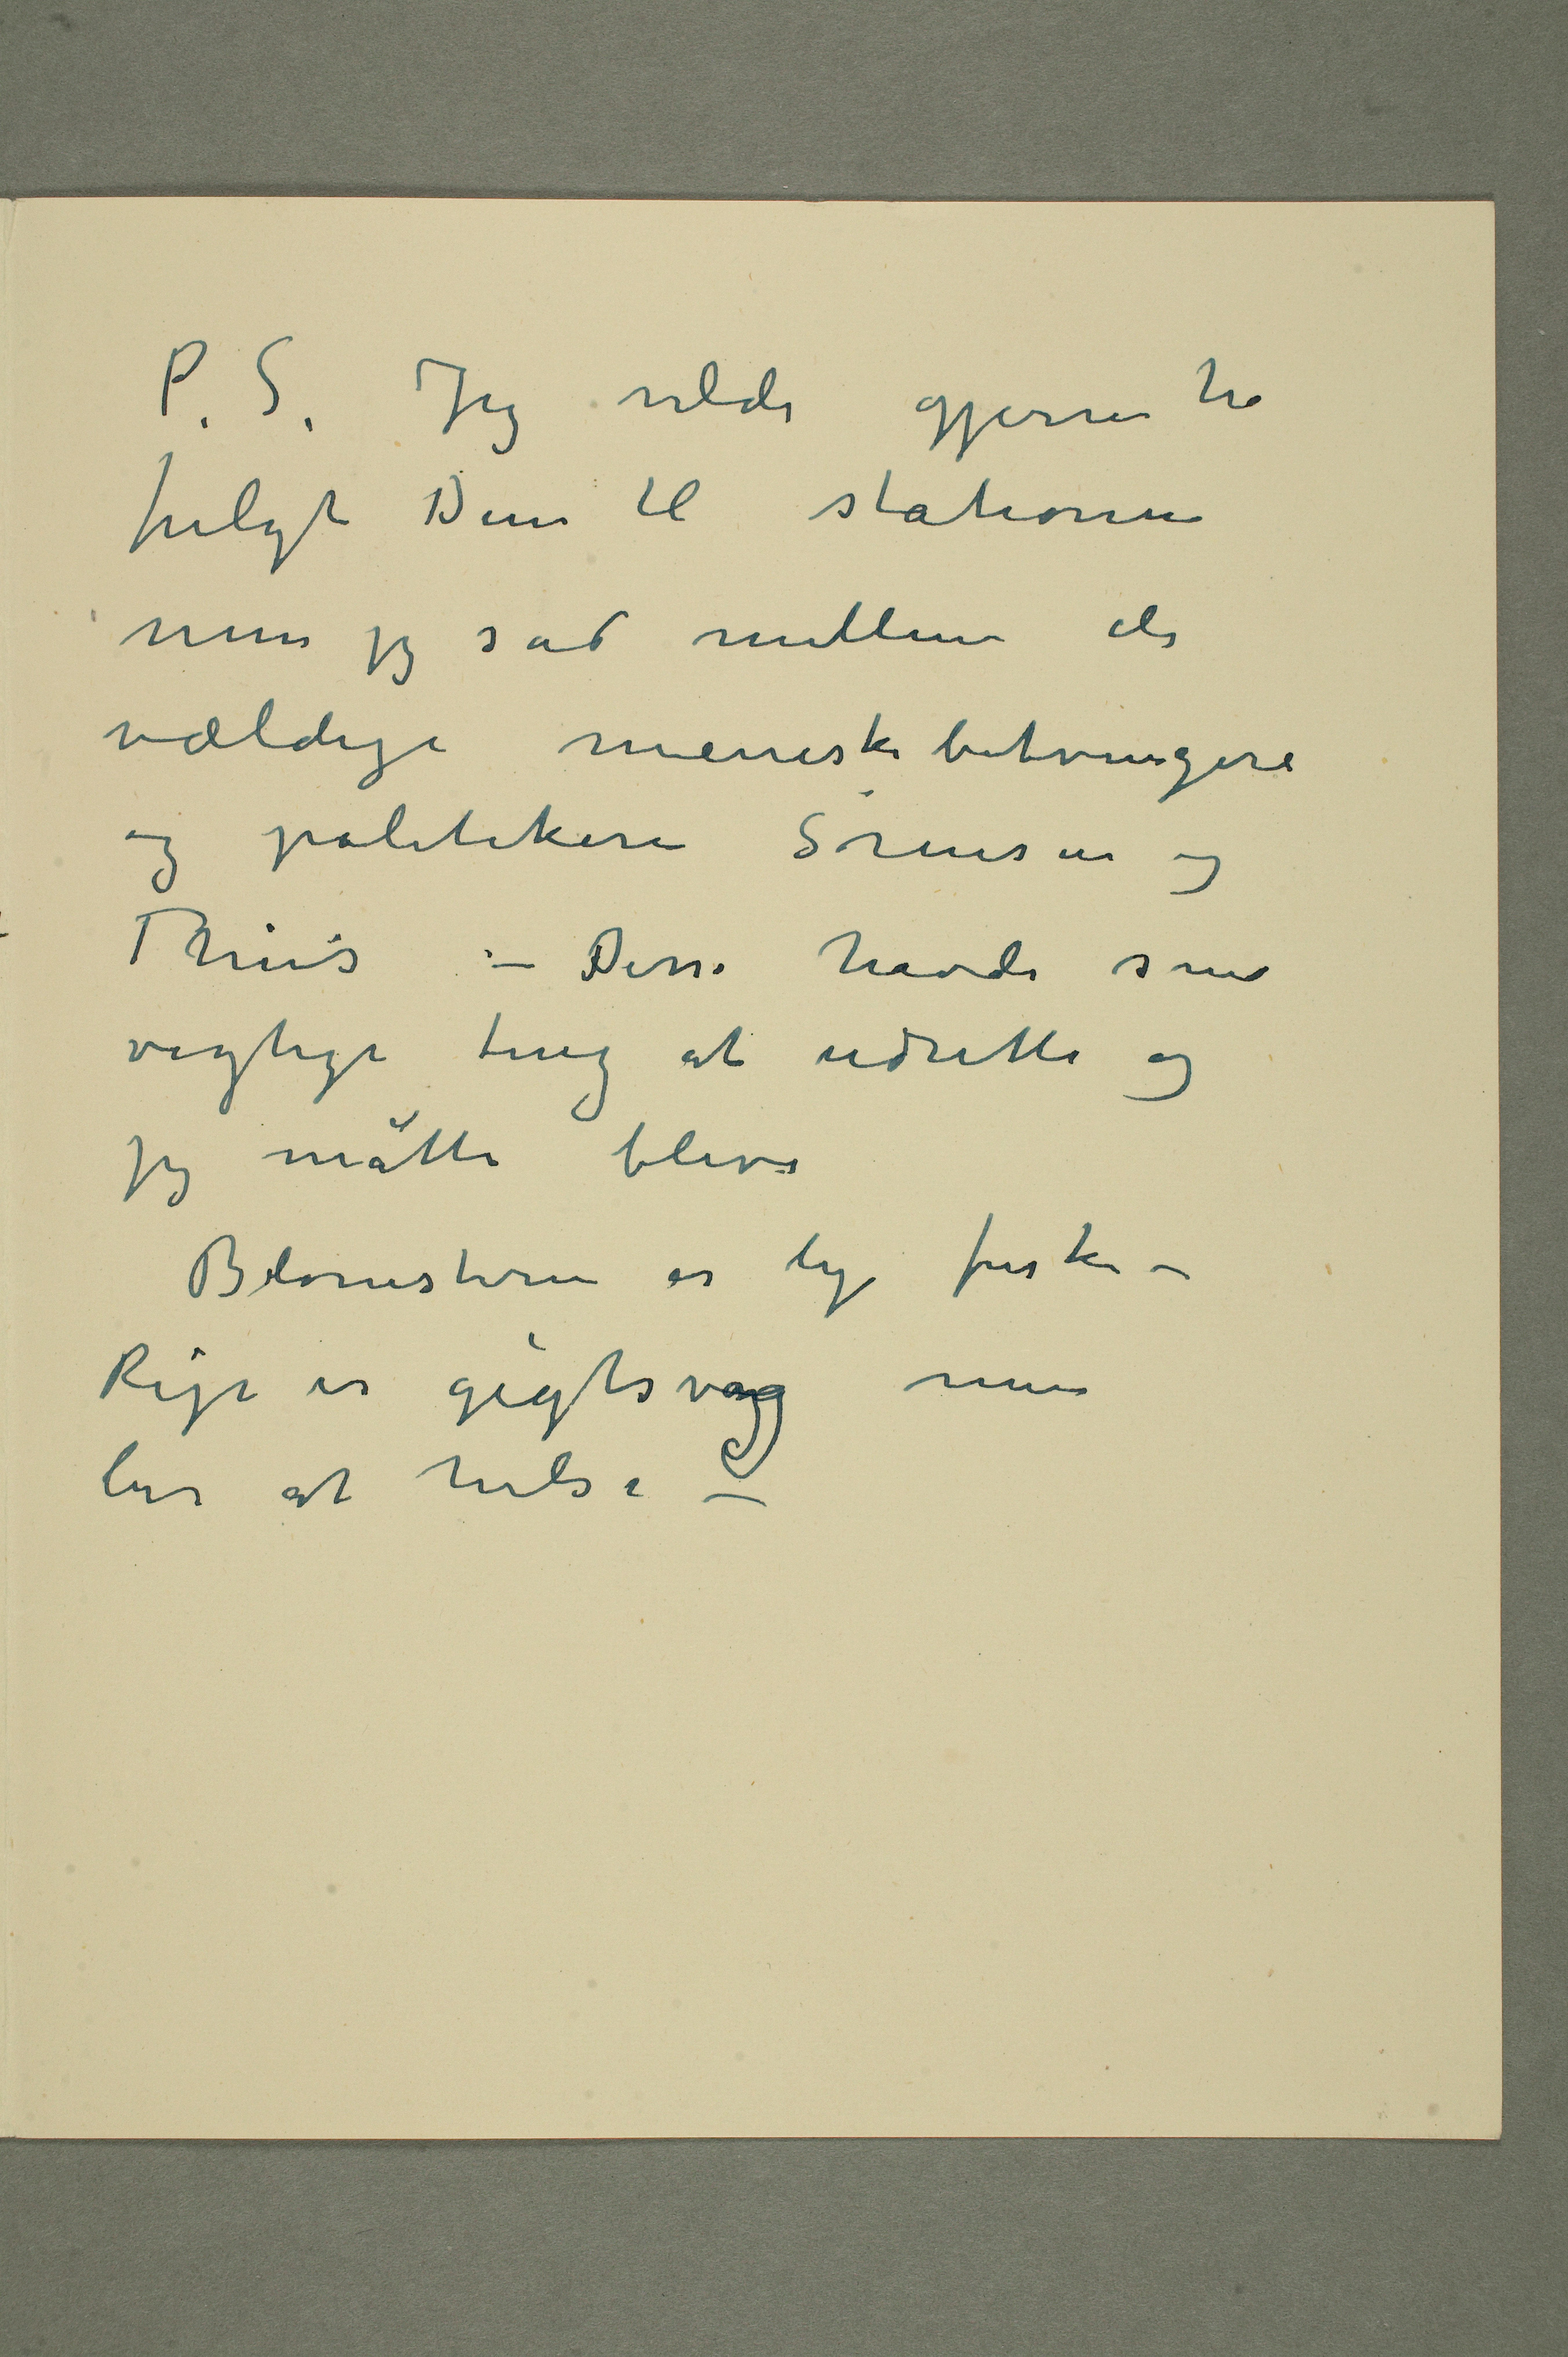 P.S. Jeg vilde gjerne ha
fulgt Dem til stationen
men jeg sad mellem de
vældige menneskebetvingere
og politikere Sørensen og
Thiis – Disse havde sine
vigtige ting at udrette og
jeg måtte blive
Blomsterne er lige friske –
er gigtsvag men
ber at hilse –